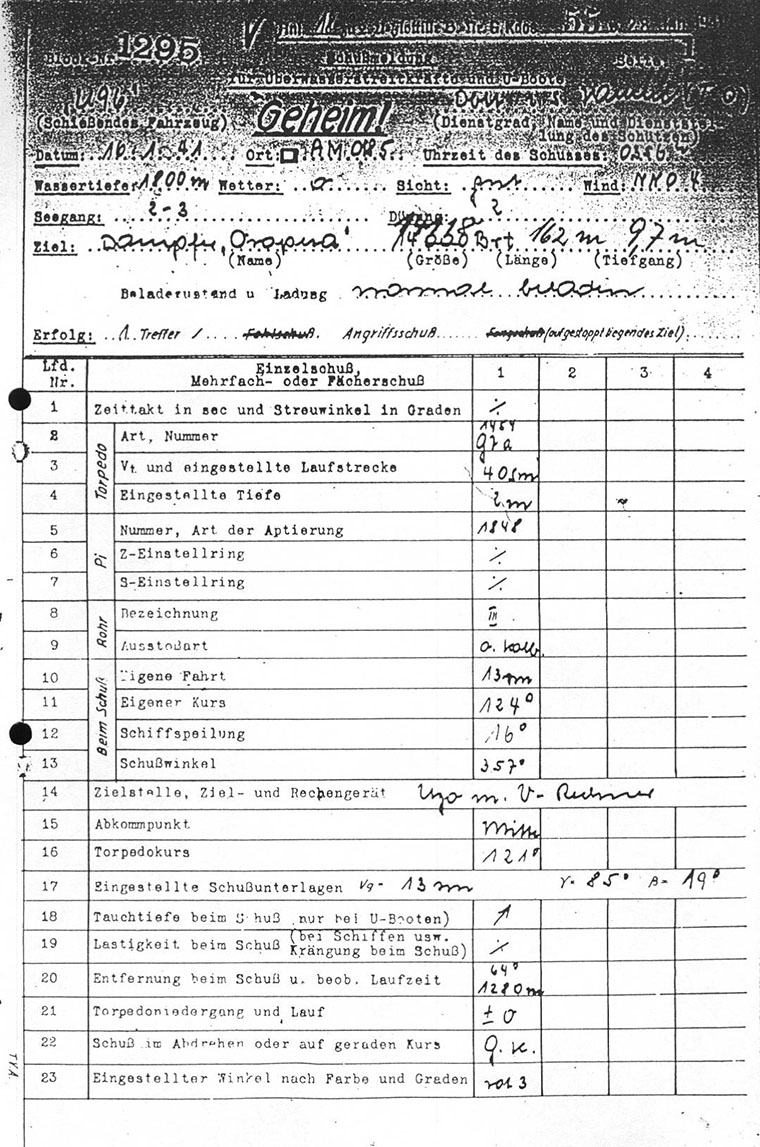 Block-Nr 1295
Schußmeldung
Seite: 1
für Überwasserstreitkräfte und U-Boote
"U96"
Geheim!
(Schießendes Fahrzeug)
(Dienstgrad, Name und Dienststel-
lung des Schützen)
Datum: 16.1.41 Ort: AM 015 Uhrzeit des Schusses:
Wassertiefe: 1800 m Wetter: o Sicht: gut Wind: NNO 4
Seegang: 2-3 Dünung: 2
Ziel: Dampfer "Oropesa" Brt 162 m 9,7 m
(Name) (Größe) (Länge) (Tiefgang)
Beladezustand u Ladung normal beladen
Erfolg: 1. Treffer / Fehlschuß. Angriffsschuß Fangschuß (auf gestoppt liegendes Ziel)
Lfd. Nr. Einzelschuß, Mehrfach- oder Fächerschuß 1 2 3 4
1 Zeittakt in sec und Streuwinkel in Graden ./.
Torpedo
2 Art, Nummer G7a
3 Vt und eingestellte Laufstrecke 40 sm
4 Eingestellte Tiefe 2 m
Pi
5 Nummer, Art der Aptierung 1848
6 Z-Einstellring ./.
7 S-Einstellring ./.
Rohr
8 Bezeichnung III
9 Ausstoßart o. Kolb.
Beim Schuß
10 Eigene Fahrt 13 sm
11 Eigener Kurs 124°
12 Schiffspeilung 16°
13 Schußwinkel 357°
14 Zielstelle, Ziel- und Rechengerät Uzo m. V-Rechner
15 Abkommpunkt Mitte
16 Torpedokurs 121°
17 Eingestellte Schußunterlagen Vg= 13 sm γ= 85° β= 19°
18 Tauchtiefe beim Schuß (nur bei U-Booten)
19 Lastigkeit beim Schuß (bei Schiffen usw. Krängung beim Schuß) ./.
20 Entfernung beim Schuß u. beob. Laufzeit 64" 1280 m
21 Torpedoniedergang und Lauf ± 0
22 Schuß im Abdrehen oder auf geraden Kurs g. K.
23 Eingestellter Winkel nach Farbe und Graden rot 3
TVA